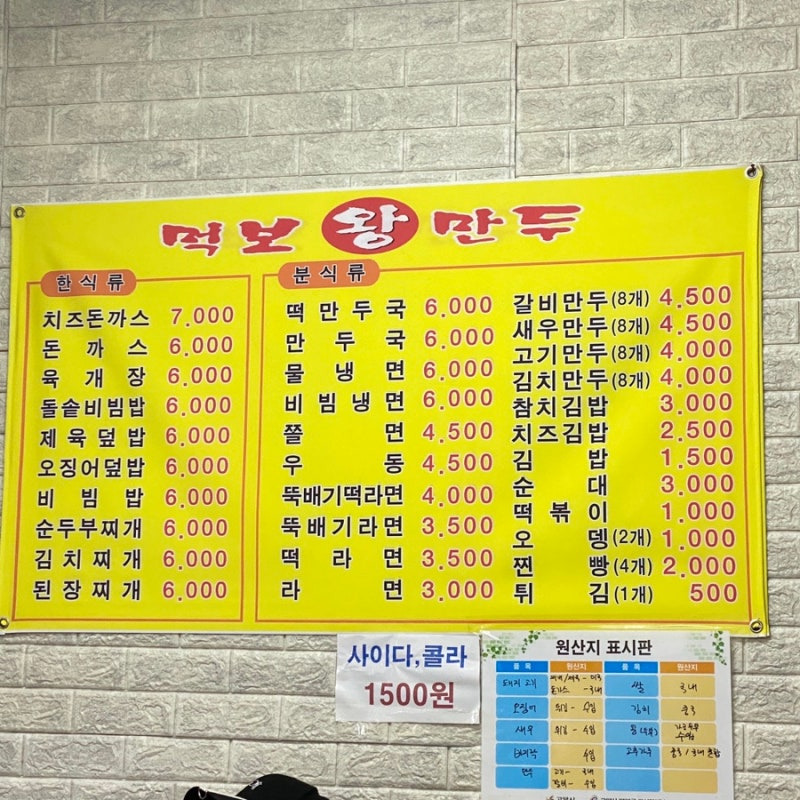 먹보 왕 만두
한식류
치즈돈까스 7.000
돈까스 6.000
육개장 6.000
돌솥비빔밥 6.000
제육덮밥 6.000
오징어덮밥 6.000
비빔밥 6.000
순두부찌개 6.000
김치찌개 6.000
된장찌개 6.000
분식류
떡만두국 6.000
만두국 6.000
물냉면 6.000
비빔냉면 6.000
쫄면 4.500
우동 4.500
뚝배기떡라면 4.000
뚝배기라면 3.500
떡라면 3.500
라면 3.000
갈비만두(8개) 4.500
새우만두(8개) 4.500
고기만두(8개) 4.000
김치만두(8개) 4.000
참치김밥 3.000
치즈김밥 2.500
김밥 1.500
순대 3.000
떡볶이 1.000
오뎅(2개) 1.000
찐빵(4개) 2.000
튀김(1개) 500
사이다,콜라
1500원
원산지 표시판
품목 원산지 품목 원산지
돼지고기 쌀 국내
오징어 튀김 - 수입 김치 중국
새우 튀김 - 수입
수입 고추가루 중국/국내 혼합